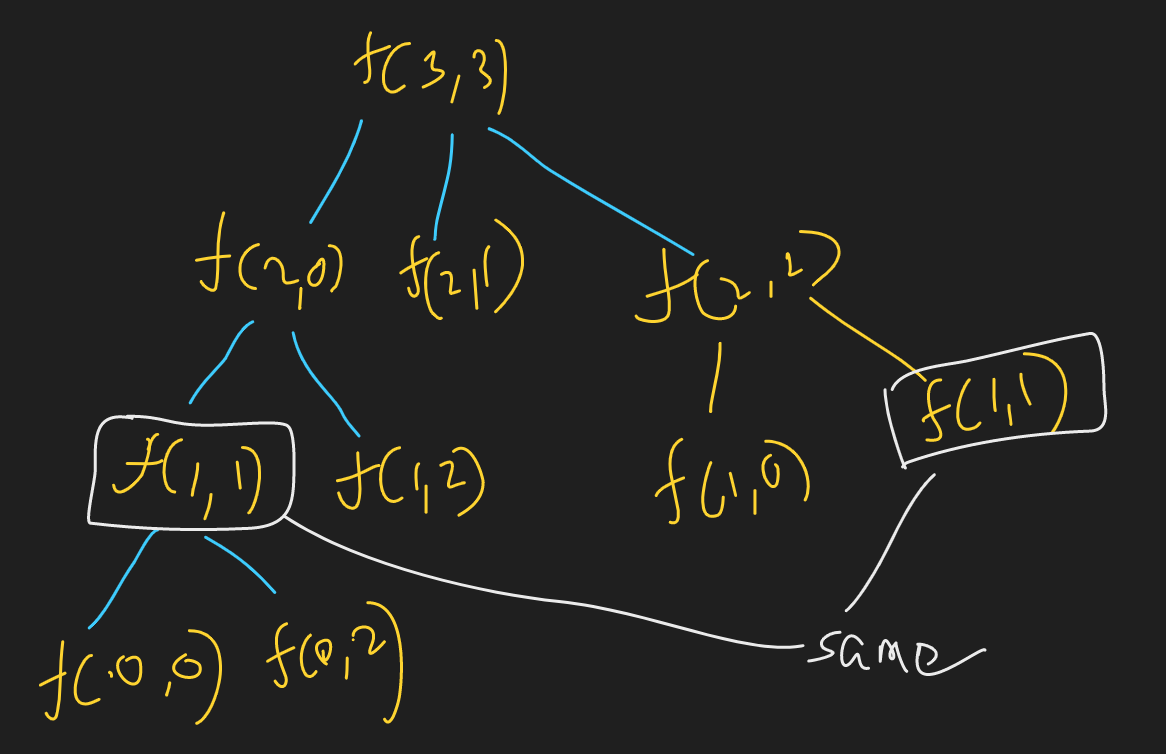 f(3,3)
f(2,0) f(2,1) f(2,2)
f(1,1)
f(1,1) f(1,2) f(1,0)
f(0,0) f(0,2)
same